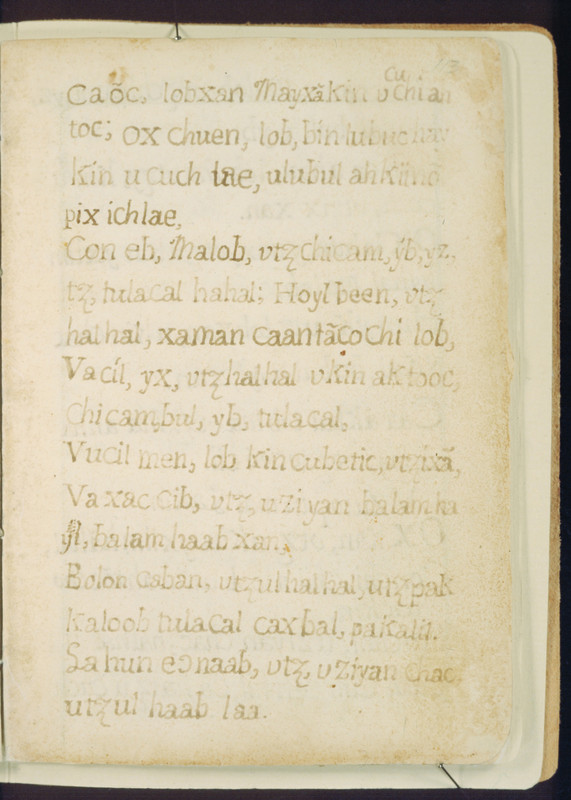 Ca õc, lobxan Mayxãkin v chi an
toc; ox chuen, lob, bin lubuc hay
kin u cuch lae, ulubul ahkiino
pix ichlae,
Con eb, Malob, vtꜩ chicam, yb, yz,
tꜩ, tulacal hahal; Hoyl been, vtꜩ
halhal, xaman caantãcochi lob,
Vacil, yx, vtꜩ halhal v kin aktooc,
Chicam, bul, yb, tulacal,
Vucil men, lob kin cubetic, vtꜩ ixã,
Vaxac cib, vtꜩ, uziyan balamha
yl, balam haab xan,
Bolon caban, vtꜩul halhal, utꜩ pak
kaloob tulacal caxbal, pakalil.
La hun eↄnaab, vtꜩ, vziyan chac,
utꜩul haab laa.